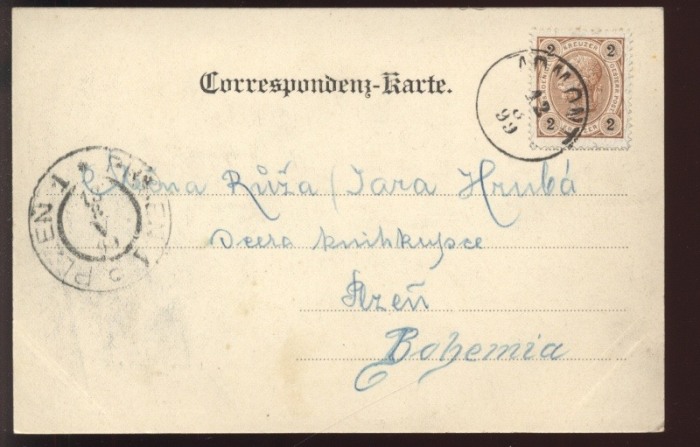 Correspondenz-Karte.
2 KREUZER 2
2 2
12
8
99
PLZEŇ 1 * PILSEN 1
Růža / Jara Hrubá
Dcera knihkupce
Plzeň
Bohemia